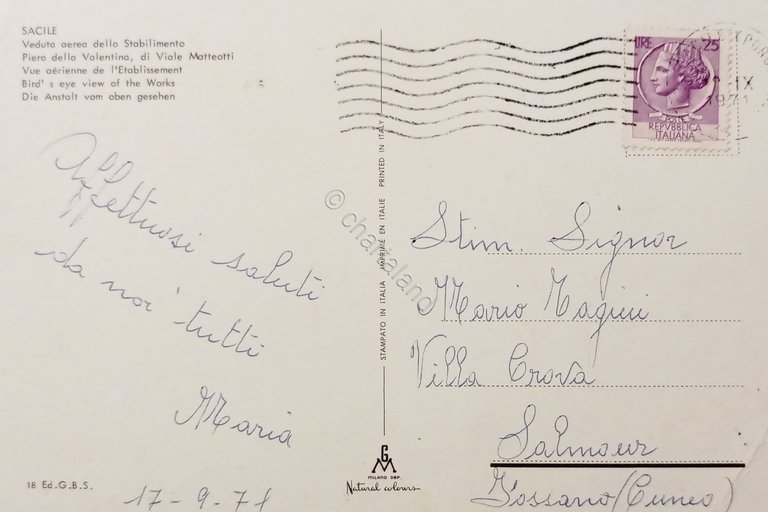 SACILE
Veduta aerea dello Stabilimento
Piero della Valentina, di Viale Matteotti
Vue aérienne de l'Etablissement
Bird' s eye view of the Works
Die Anstalt vom oben gesehen
LIRE 25
POSTE
REPVBBLICA
ITALIANA
IX
1971
Affettuosi saluti
da noi tutti
Maria
17-9-71
18 Ed.G.B.S.
STAMPATO IN ITALIA IMPRIMÉ EN ITALIE PRINTED IN ITALY
© charialand
GM
MILANO DEP.
Natural colours
Stim. Signor
Mario Magini
Villa Crova
Salmour
Fossano (Cuneo)